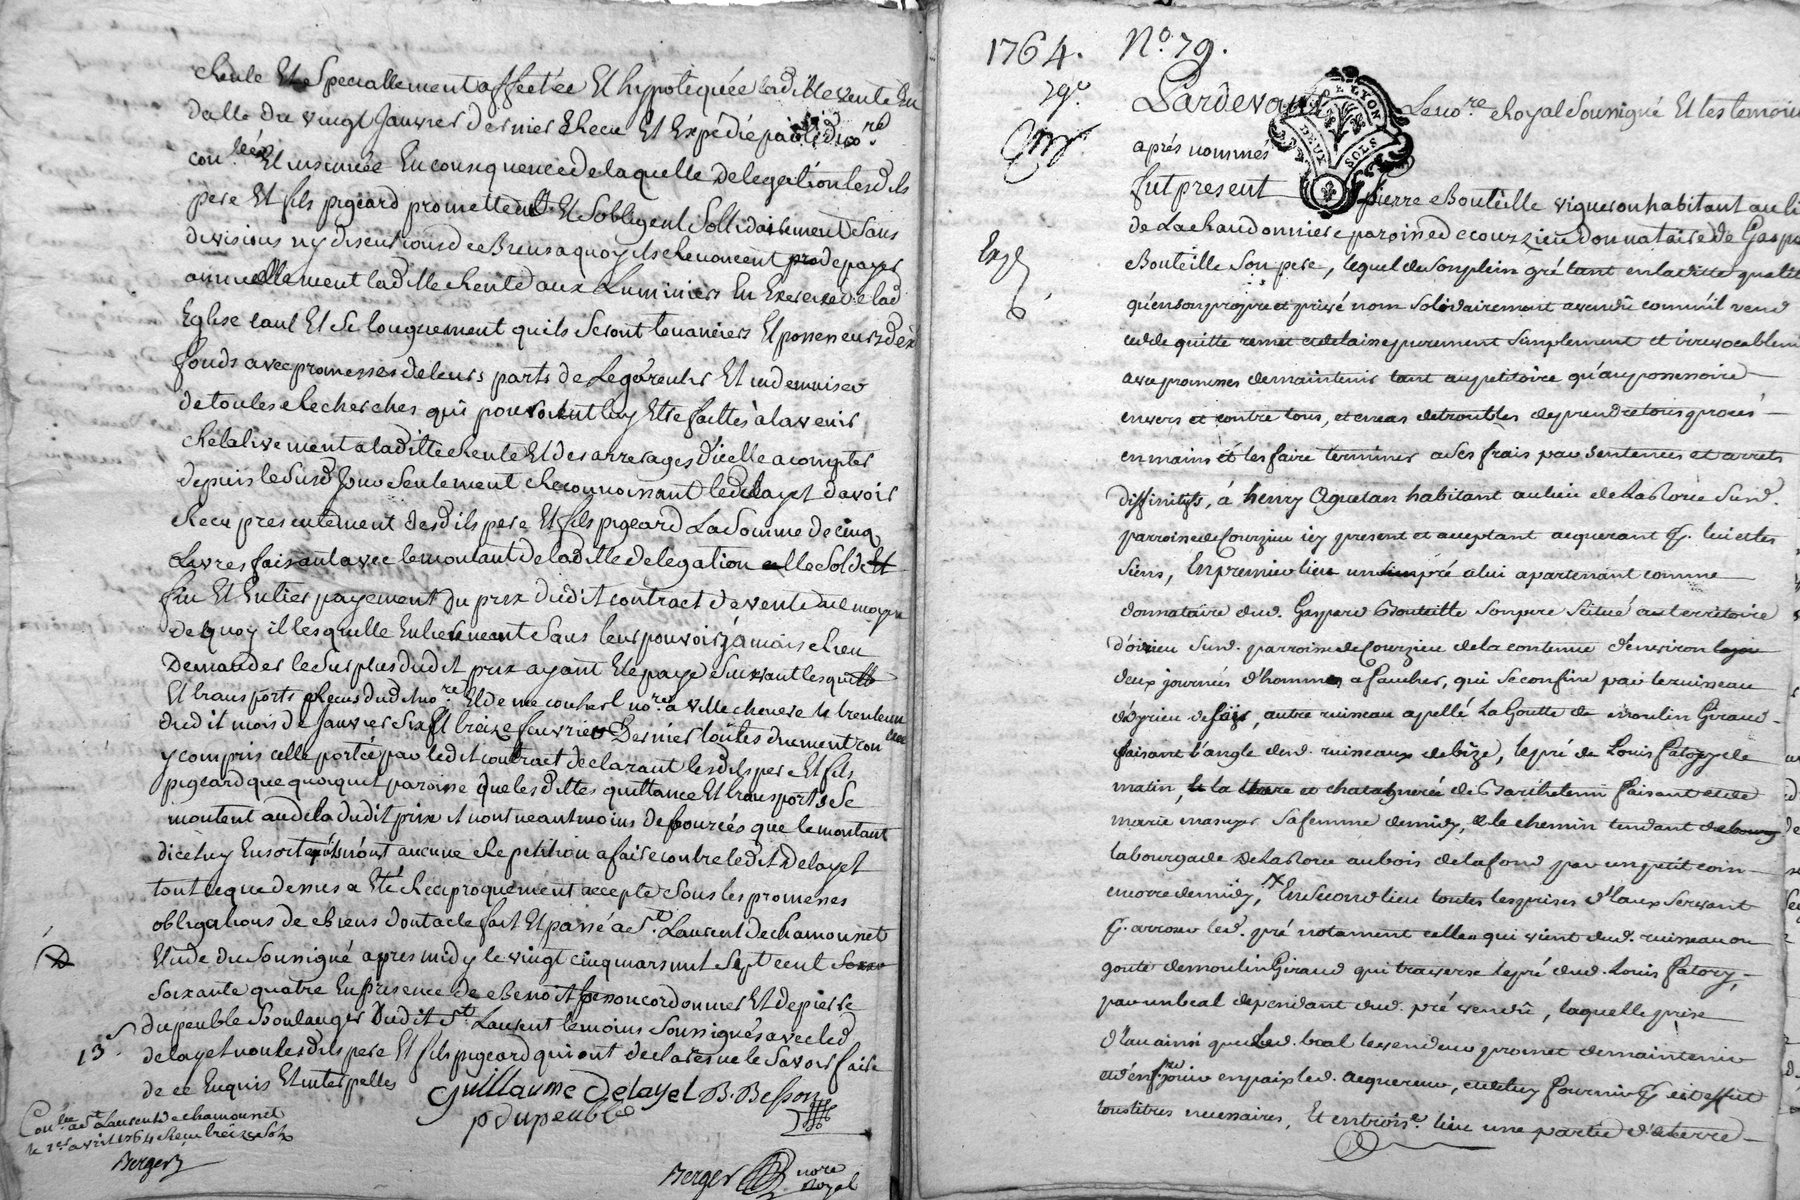 Rente Et Speciallement affectée Et hypotequée ladille vente En
datte du vingt Janvier dernier Recu Et Expédié par led no.re
con.lée Et insinuée En consequence de laquelle delegation lesdils
pere Et fils pigeard promettent Et Soblegent Sollidairement Sans
divisions ny discutions de Biens a quoy ils Renoncent de payer
annuellement ladille Rente aux Luminiers En Exercice de lad
Eglise tant Et Si longuement quils Seront tenanciers Et possesseurs des
fonds avec promesses de leurs parts de le garentir Et indemniser
de toutes Recherches qui pouroient luy Etre faittes à lavenir
Relativement a ladille Rente Et des arrerages dicelle a compter
depuis le Susd Jour Seulement Reconnoissant led delayet davoir
Recu presentement desdils pere Et fils pigeard La Somme de cinq
Livres faisant avec le montant de ladille delegation le Solde Et
fin Et Entier payement du prix dudit contract de vente au moyen
de quoy il les quitte Entierement Sans leur pouvoir jamais Rien
Demander le Surplus dudit prix ayant Eté payé Suivant les quitt
Et transports Recus dudit no.re Et de me couhert no.re a ville cheneve le trente un
dudit mois de Janvier Six Et treize fevrier Dernier toutes duement con
y compris celle portée par ledit contract declarant lesdils pere Et fils
pigeard que quoique paroisse que lesdittes quittance Et transports Se
montent audela dudit prix il nont neantmoins debourcés que le montant
dicelluy En Sorte quils nont aucune Repetition a faire contre ledit Delayet
tout ce que dessus a Eté Reciproquement accepté Sous les promesses
obligations de Biens dont acte fait Et passé a S.t Laurent de chamousset
Etude du Soussigné apres midy le vingt cinq mars mil Sept cent
Soixante quatre En presence de Benoit Besson cordonnier Et de pierre
dupeuble Boulanger Dudit S.t Laurent temoins Soussignés avec led
delayet non lesdils pere Et fils pigeard qui ont declaré ne le Savoir faire
de ce Enquis Et interpellés
13.s
Guillaume Delayet B. Besson
p dupeuble
Con.lée a S.t Laurent de chamousset
le 1er avril 1764 Recu treize Sols
Berger
Berger nore Royal
1764. N.o 79.
29.e
Pardevant Le no.re Royal Soussigné Et les temoins
DE LYON
DEUX SOLS
aprés nommés
fut present pierre Bouteille vigneron habitant au li
Exp
de La chaudonniere paroisse de courzieu donnataire de Gaspa
Bouteille Son pere, lequel de Son plein gré tant en laditte qualité
qu'en son propre et privé nom Solidairement a vendû comme il vend
cedde quitte remet et delaisse purement Simplement et irrevocablem
avec promesses de maintenir tant au petitoire qu'au possessoire
envers et contre tous, et en cas de troubles de prendre tous procés
en mains et les faire terminer a Ses frais par Sentences et arrets
diffinitifs, á henry Aguetan habitant au lieu de La Sur d.
parroisse de Courzieu icy present et acceptant acquerant p. lui et les
Siens, En premier lieu un pré a lui apartenant comme
donnataire dud. Gaspard Bouteille Son pere Scitué au territoire
d'oirieu Sur d. parroisse de Courzieu de la contenue d'environ
deux journées d'hommes a faucher, qui Se confine par le ruisseau
d'oyrieu de Soir, autre ruisseau apellé La Goutte de moulin Giraud
faisant l'angle desd. ruisseaux de bize, le pré de Louis fatory de
matin, la terre et chataignerée de Barthelemi faisant et de
marie Sa femme de midy, & le chemin tendant
la bourgade de La au bois de la fond par un petit coin
encorre de midy, En Second lieu toutes les prises d'Eaux Servant
p. arroser led. pré notament celle qui vient dud. ruisseau ou
goute de moulin Giraud qui traverse le pré dud. Louis fatory,
par un beal dependant dud. pré vendû, laquelle prise
d'Eau ainsi que led. beal le vendeur promet de maintenir
et d'en f.re jouir en paix led. acquereur, et de luy fournir p. cet effet
tous titres necessaires, Et en trois.e lieu une partie de terre